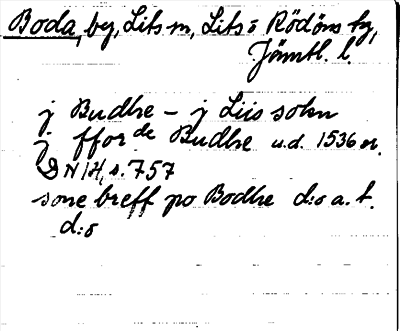 Boda, by, Lits sn, Lits o Rödöns tg,
Jämtl. l.
j Budhe – j Liis sokn
j fforde Budhe u.d. 1536 or.
DN 14, s. 757
sone breff po Bodhe d:o a. t.
d:o